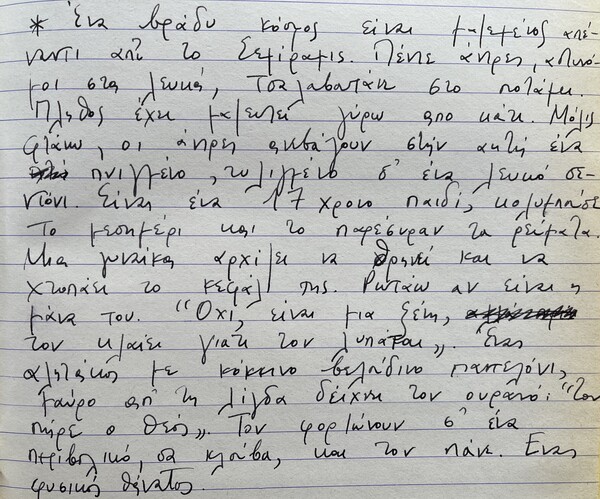 * Ένα βράδυ κόσμος είναι μαζεμένος απέ-
ναντι απ το Σεμίραμις. Πέντε άντρες, αστυνό-
μοι στα λευκά, τσαλαβατάν στο ποτάμι.
Πλήθος έχει μαζευτεί γύρω απο κάτι. Μόλις
φτάνω, οι άντρες εκβάλουν στην ακτή ένα
πνιγμένο, τυλιγμένο σ' ένα λευκό σε-
ντόνι. Είναι ένα 17χρονο παιδί, κολυμπούσε
το μεσημέρι και το παρέσυραν τα ρεύματα.
Μια γυναίκα αρχίζει να θρηνεί και να
χτυπάει το κεφάλι της. Ρωτάω αν είναι η
μάνα του. "Όχι, είναι μια ξένη,
τον κλαίει γιατί τον λυπάται„. Ένας
αλητάκος με κόκκινο βελούδινο παντελόνι,
μαύρο απ' τη λίγδα δείχνει τον ουρανό: "τον
πήρε ο θεός„. Τον φορτώνουν σ' ένα
περιβολικό, σα κλούβα, και τον πάνε. Ένας
φυσικός θάνατος.